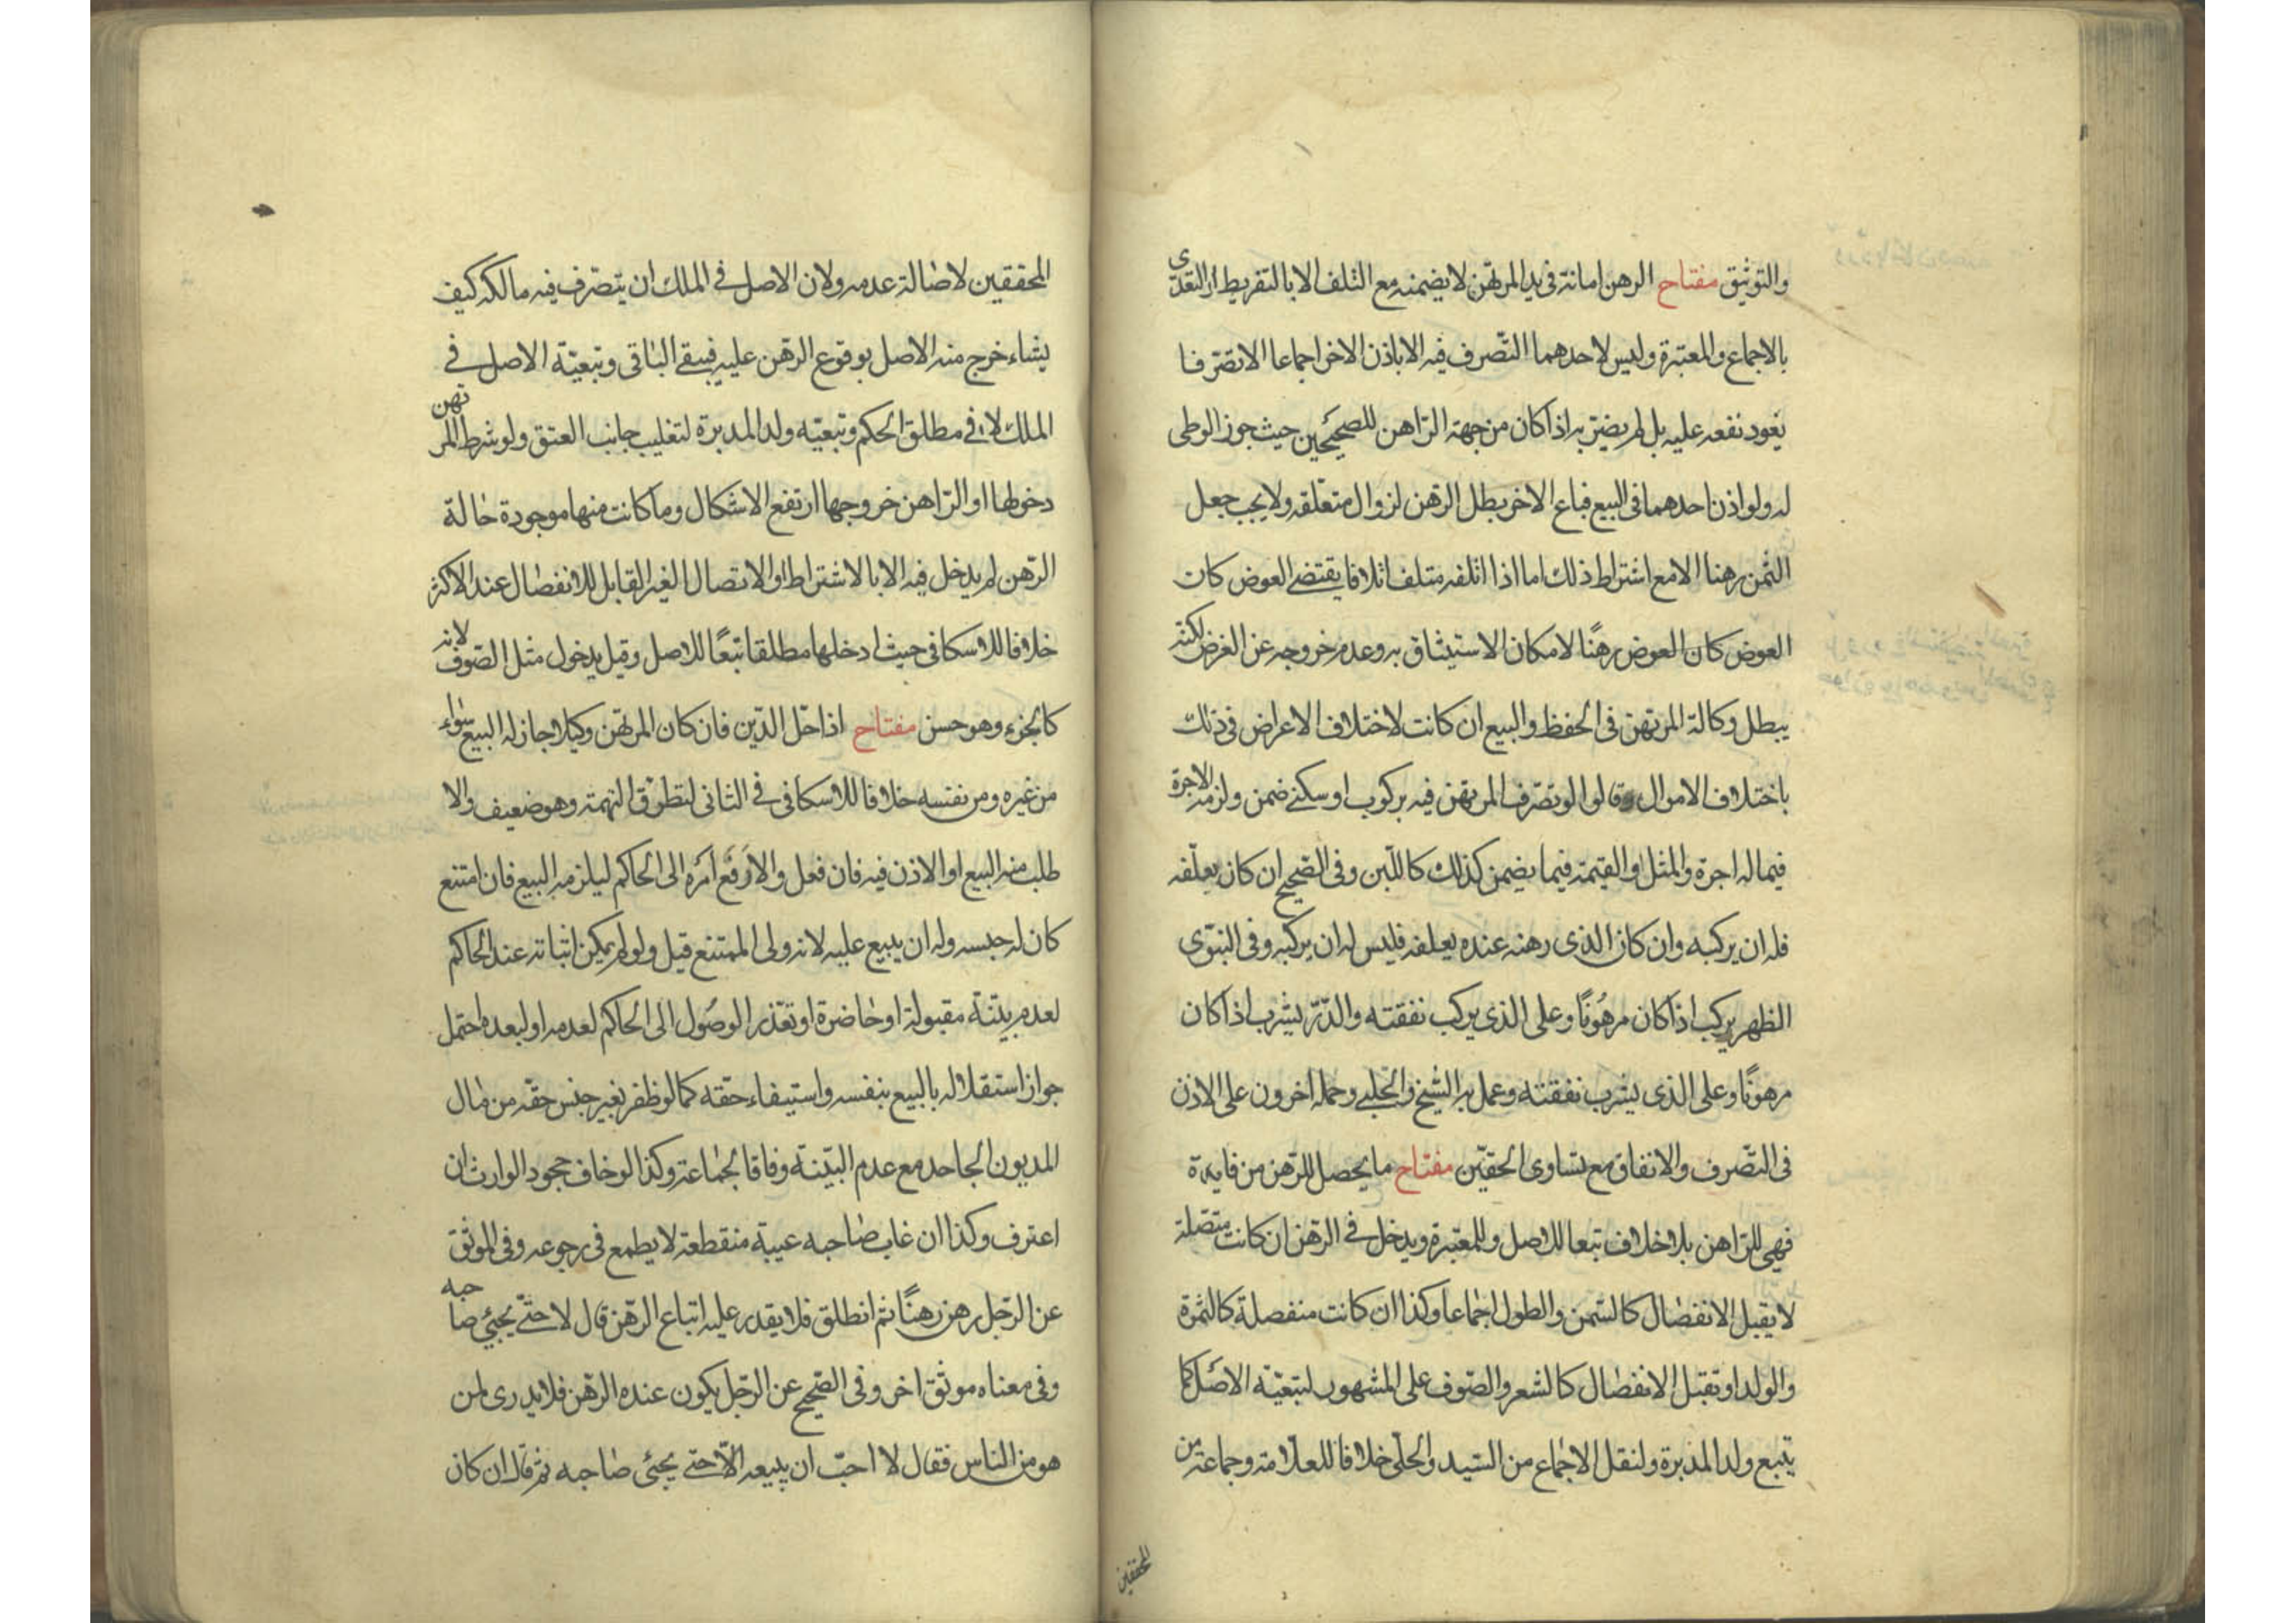 والتوثيق مفتاح الرهن امانة في يد المرتهن لا يضمنه مع التلف الا بالتفريط او التعدى
بالاجماع والمعتبرة وليس لاحدهما التصرف فيه الا باذن الاخر اجماعا الا تصرفا
يعود نفعه عليه بل لم يضر به اذا كان من جهة الراهن للصحيحين حيث جوز الوطى
له ولو اذن احدهما فى البيع فباع الاخر بطل الرهن لزوال متعلقه ولا يجب جعل
الثمن رهنا الا مع اشتراط ذلك اما اذا اتلفه متلف اتلافا يقتضي العوض كان
العوض كان العوض رهنًا لامكان الاستيثاق به وعدم خروجه عن الغرض لكنه
يبطل وكالة المرتهن فى الحفظ والبيع ان كانت لاختلاف الاعراض فى ذلك
باختلاف الاموال وقالوا لو تصرف المرتهن فيه بركوب او سكنى ضمن ولزمه الاجرة
فيما له اجرة والمثل او القيمة فيما يضمن كذلك كاللبن وفى الصحيح ان كان يعلفه
فله ان يركبه وان كان الذى رهنه عنده يعلفه فليس له ان يركبه وفى النبوى
الظهر يركب اذا كان مرهُونًا وعلى الذى يركب نفقته والدّرّ يشرب اذا كان
مرهونًا وعلى الذى يشرب نفقته وعمل به الشيخ والحلبي وحمله اخرون على الاذن
فى التصرف والانفاق مع تساوى الحقين مفتاح ما يحصل للرهن من فايدة
فهي للراهن بلا خلاف تبعا للاصل وللمعتبرة ويدخل في الرهن ان كانت متصلة
لا يقبل الانفصال كالسمن والطول اجماعا وكذا ان كانت منفصلة كالثمرة
والولد او تقبل الانفصال كالشعر والصوف على المشهور لتبعية الاصل كما
يتبع ولد المدبرة ولنقل الاجماع من السيد والحلى خلافا للعلامة وجماعة من
المحققين
المحققين لاصالة عدمه ولان الاصل في الملك ان يتصرف فيه مالكه كيف
يشاء خرج منه الاصل بوقوع الرهن عليه فيبقى الباقى وتبعية الاصل في
الملك لا في مطلق الحكم وتبعية ولد المدبرة لتغليب جانب العتق ولو شرط المرتهن
دخولها او الراهن خروجها ارتفع الاشكال وما كانت منها موجودة حالة
الرهن لم يدخل فيه الا بالاشتراط او الاتصال الغير القابل للانفصال عند الاكثر
خلافا للاسكافى حيث ادخلها مطلقا تبعًا للاصل وقيل يدخول مثل الصوف لانه
كالجزء وهو حسن مفتاح اذا حل الدين فان كان المرتهن وكيلا جاز له البيع سواء
من غيره ومن نفسه خلافا للاسكافى في الثانى لتطرق التهمة وهو ضعيف والا
طلب منه البيع او الاذن فيه فان فعل والا رَفَع امره الى الحاكم ليلزمه البيع فان امتنع
كان له حبسه وله ان يبيع عليه لانه ولى الممتنع قيل ولو لم يمكن اثباته عند الحاكم
لعدم بيّنة مقبولة او حاضرة او تعذر الوصُول الى الحاكم لعدمه او لبعده احتمل
جواز استقلاله بالبيع بنفسه واستيفاء حقه كما لو ظفر بغير جنس حقه من مال
المديون الجاحد مع عدم البيّنة وفاقا لجماعة وكذا لو خاف جحود الوارث ان
اعترف وكذا ان غاب صاحبه عيبة منقطعة لا يطمع فى رجوعه وفى الموثق
عن الرجل رهن رهنًا ثم انطلق فلا يقدر عليه اتباع الرهن قال لا حتّى يجيئ صاحبه
وفى معناه موثق اخر وفى الصحيح عن الرجل يكون عنده الرهن فلا يدرى لمن
هو من الناس فقال لا احبّ ان يبيعه الّا حتى يجيئ صاحبه ثم قال ان كان